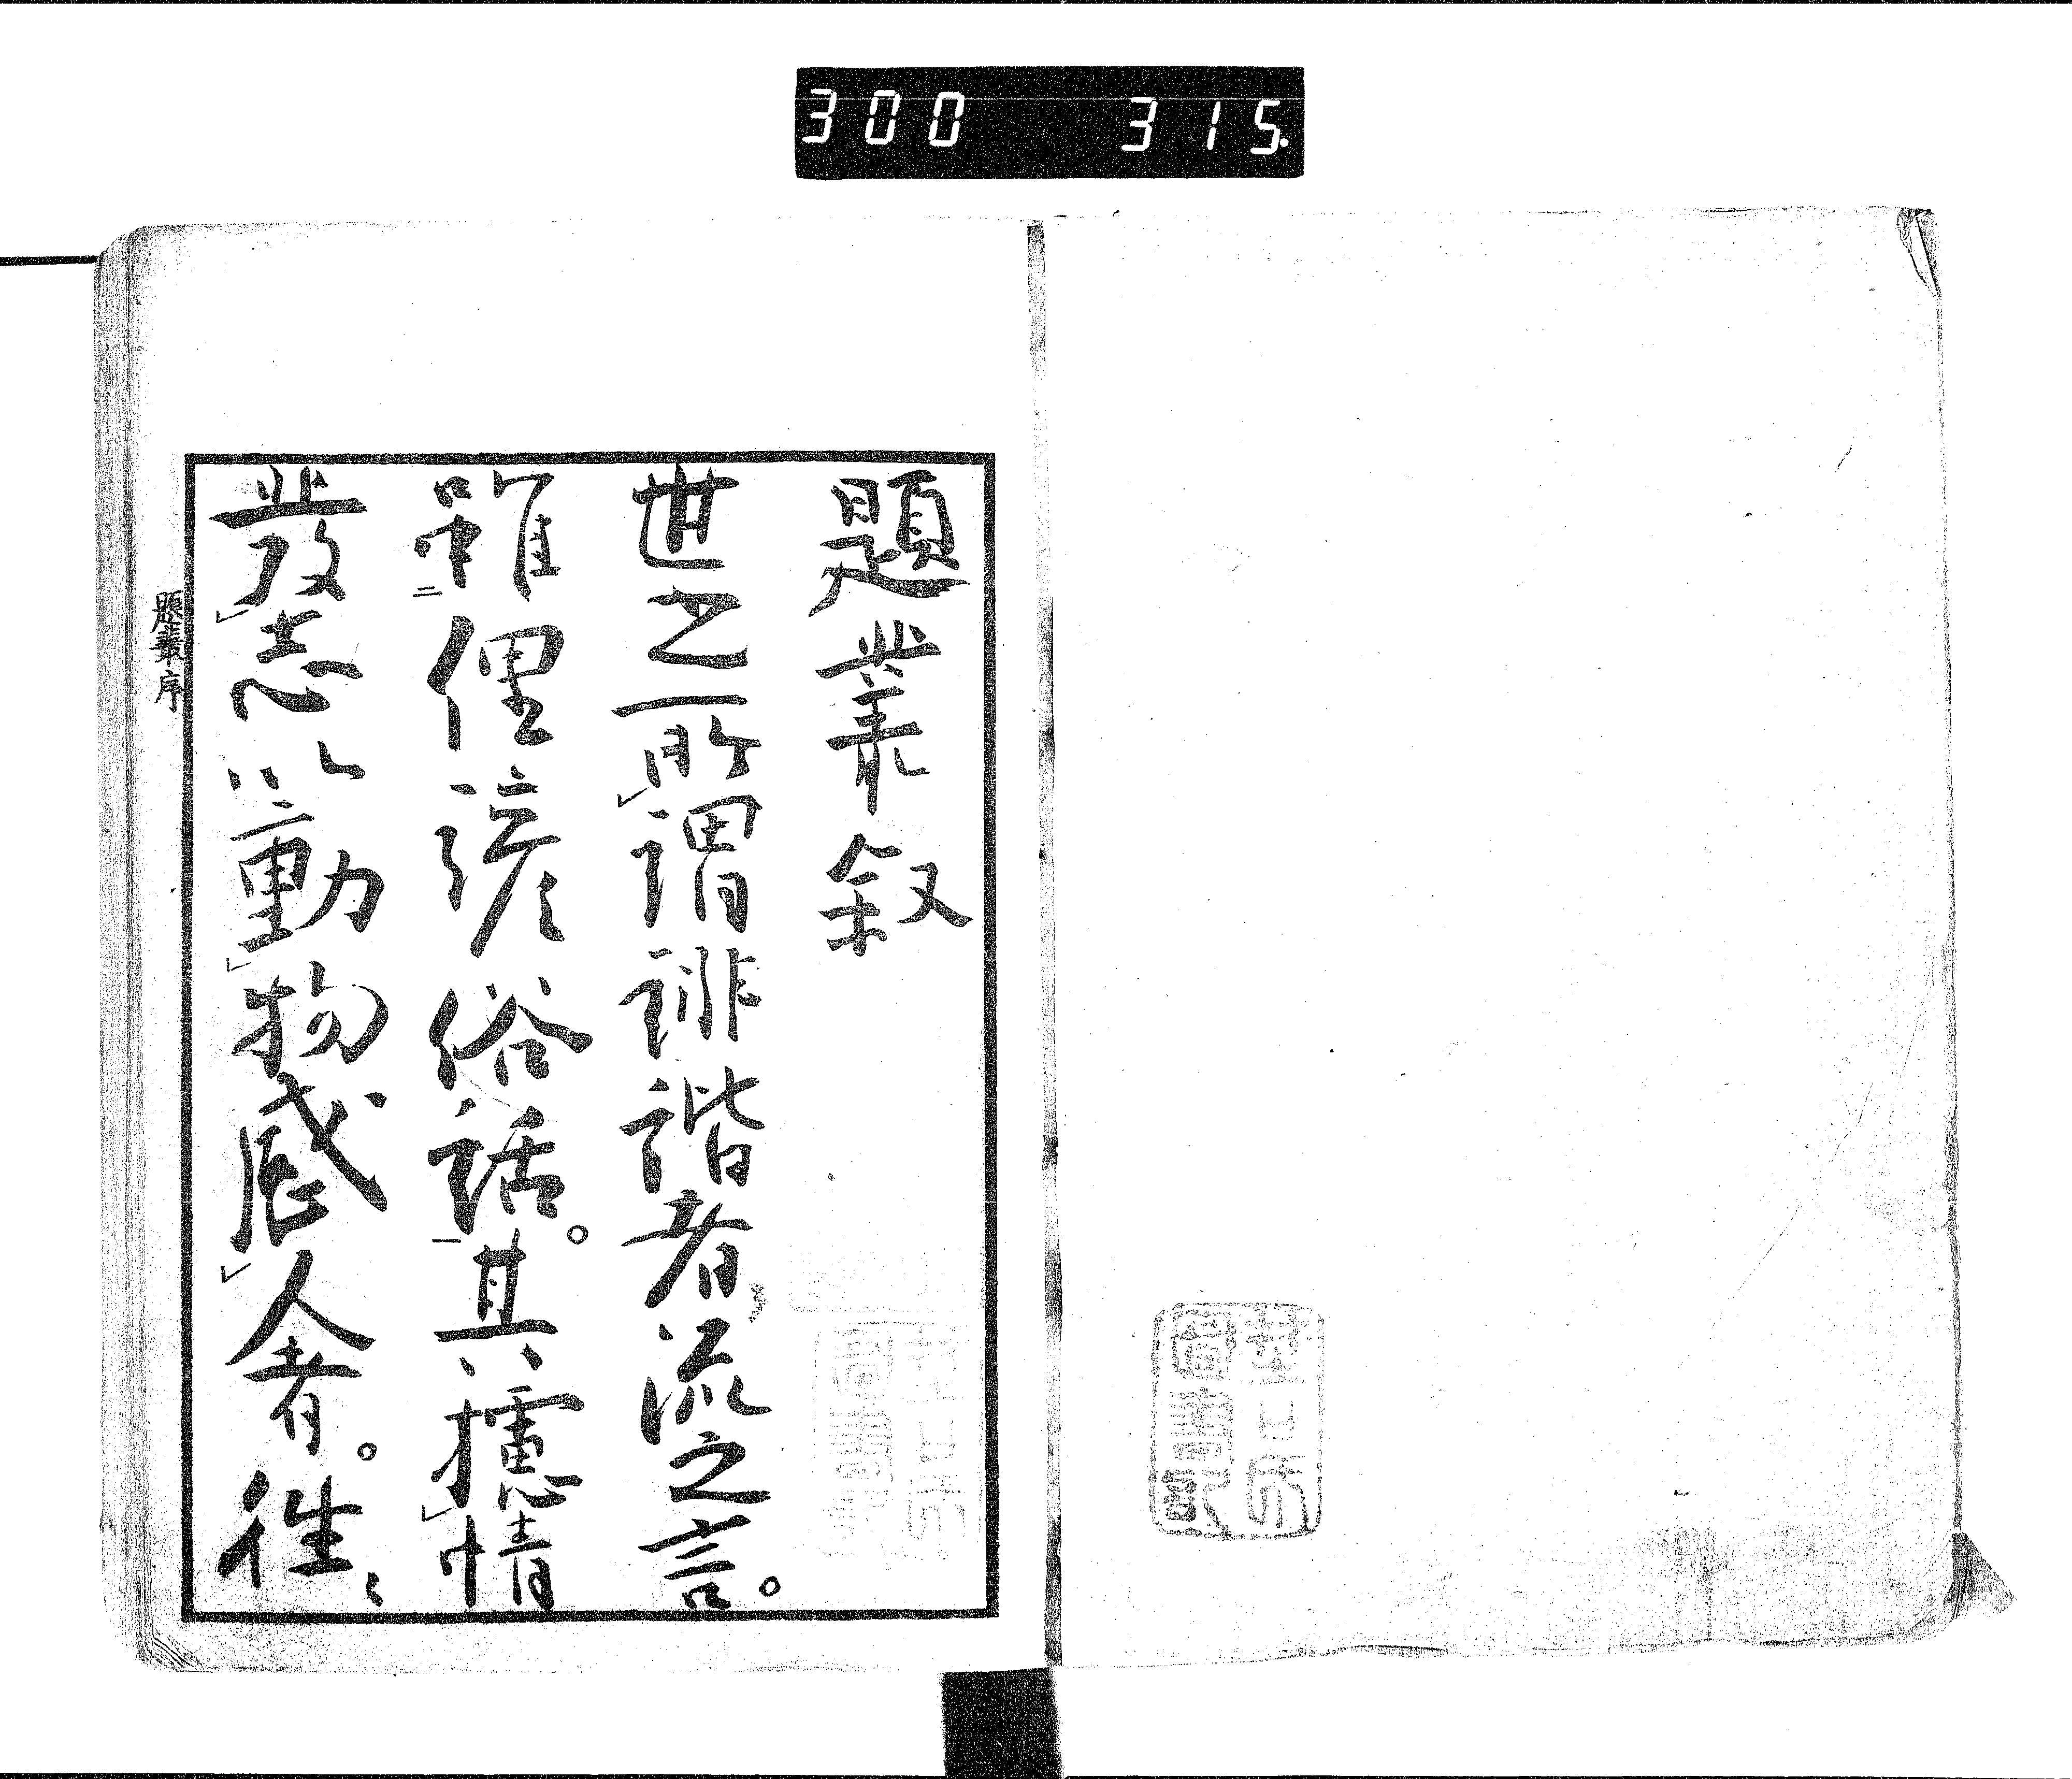 300 315.
題叢叙
世之所謂誹諧者流之言。
雖二俚諺俗話。一其攄レ情
發レ志以動レ物感レ人者。徃〻
題叢序